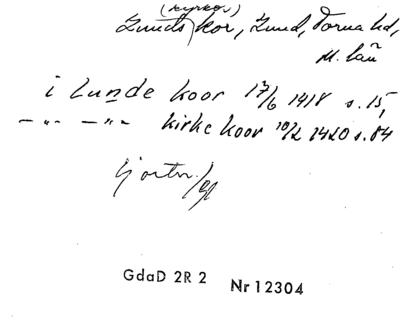 (kyrkos)
Lunds kor, Lund, Torna hd,
M. län
i Lunde koor 17/6 1418 s. 15,
— „ — — „ — kirke koor 10/2 1420 s. 84
GdaD 2R 2 Nr 12304